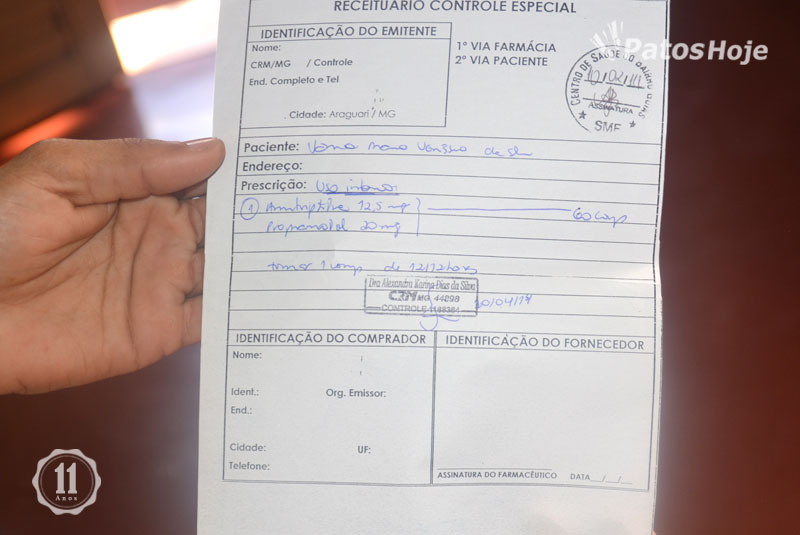 RECEITUÁRIO CONTROLE ESPECIAL
PatosHoje
IDENTIFICAÇÃO DO EMITENTE
Nome:
CRM/MG / Controle
End. Completo e Tel
Cidade: Araguari / MG
1ª VIA FARMÁCIA
2ª VIA PACIENTE
CENTRO DE SAÚDE
ASSINATURA
SMF
Paciente:
Endereço:
Prescrição: Uso interno:
1 12,5 mg 60 comp
Propranolol 20 mg
tomar 1 comp de 12/12 horas
Dra Alexandra Karina Dias da Silva
CRM MG 44898
CONTROLE
IDENTIFICAÇÃO DO COMPRADOR
Nome:
Ident.: Org. Emissor:
End.:
Cidade: UF:
Telefone:
IDENTIFICAÇÃO DO FORNECEDOR
ASSINATURA DO FARMACÊUTICO DATA__/__/__
11
Anos